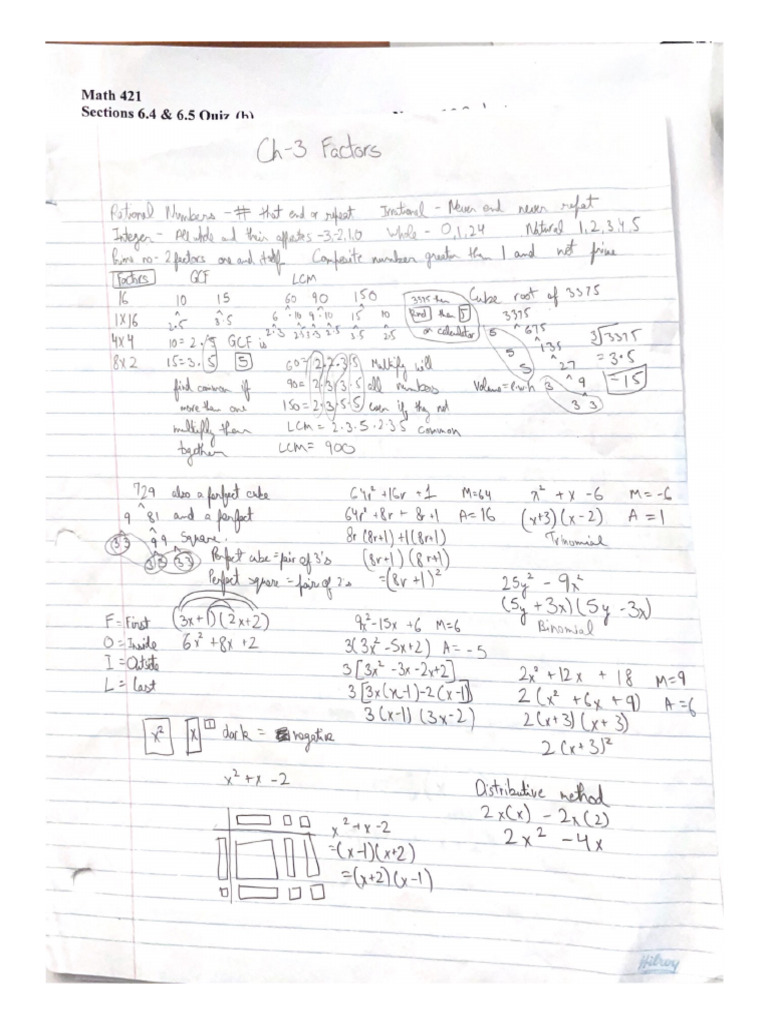 Math 421
Sections 6.4 & 6.5 Quiz (b)
Ch-3 Factors
Rational Numbers - # that end or repeat Irrational - Never end never repeat
Integer - All whole and their opposites -3,-2,1,0 Whole - 0,1,24 Natural 1,2,3,4,5
Prime no - 2 factors one and itself. Composite number greater then 1 and not prime
Factors GCF LCM
16 10 15 60 90 150 3375 then Cube root of 3375
1x16 2.5 3.5 6 10 9 10 15 10 find then 5 3375
2.3 2.5 3.3 2.5 3.5 2.5 or calculator 5 675
4x4 10=2.5 GCF is 5 135 ∛3375
8x2 15=3.5 5 60=2.2.3.5 Multiply will 5 27 = 3.5
find common if 90=2.3.3.5 all numbers Volume = l.w.h 3 9 = 15
more then one 150=2.3.5.5 even if they not 3 3
multiply them LCM = 2.3.5.2.35 common
together LCM= 900
729 also a perfect cube 64r²+16r+1 M=64 x² + x -6 M=-6
9 81 and a perfect 64r²+8r+8r+1 A=16 (x+3)(x-2) A=1
3 3 9 9 square. 8r(8r+1)+1(8r+1) Trinomial
3 3 3 3 Perfect cube = pair of 3's (8r+1)(8r+1)
Perfect square = pair of 2's =(8r+1)² 25y² - 9x²
(5y + 3x)(5y - 3x)
F = First (3x+1)(2x+2) 9x²-15x+6 M=6 Binomial
O = Inside 6x²+8x+2 3(3x²-5x+2) A=-5
I = Outside 3[3x²-3x-2x+2] 2x²+12x+18 M=9
L = Last 3[3x(x-1)-2(x-1)] 2(x²+6x+9) A=6
3(x-1)(3x-2) 2(x+3)(x+3)
x² x 1 dark = negative 2(x+3)²
x²+x-2
Distributive method
2x(x) - 2x(2)
x²+x-2 2x² - 4x
=(x-1)(x+2)
=(x+2)(x-1)
Hilroy